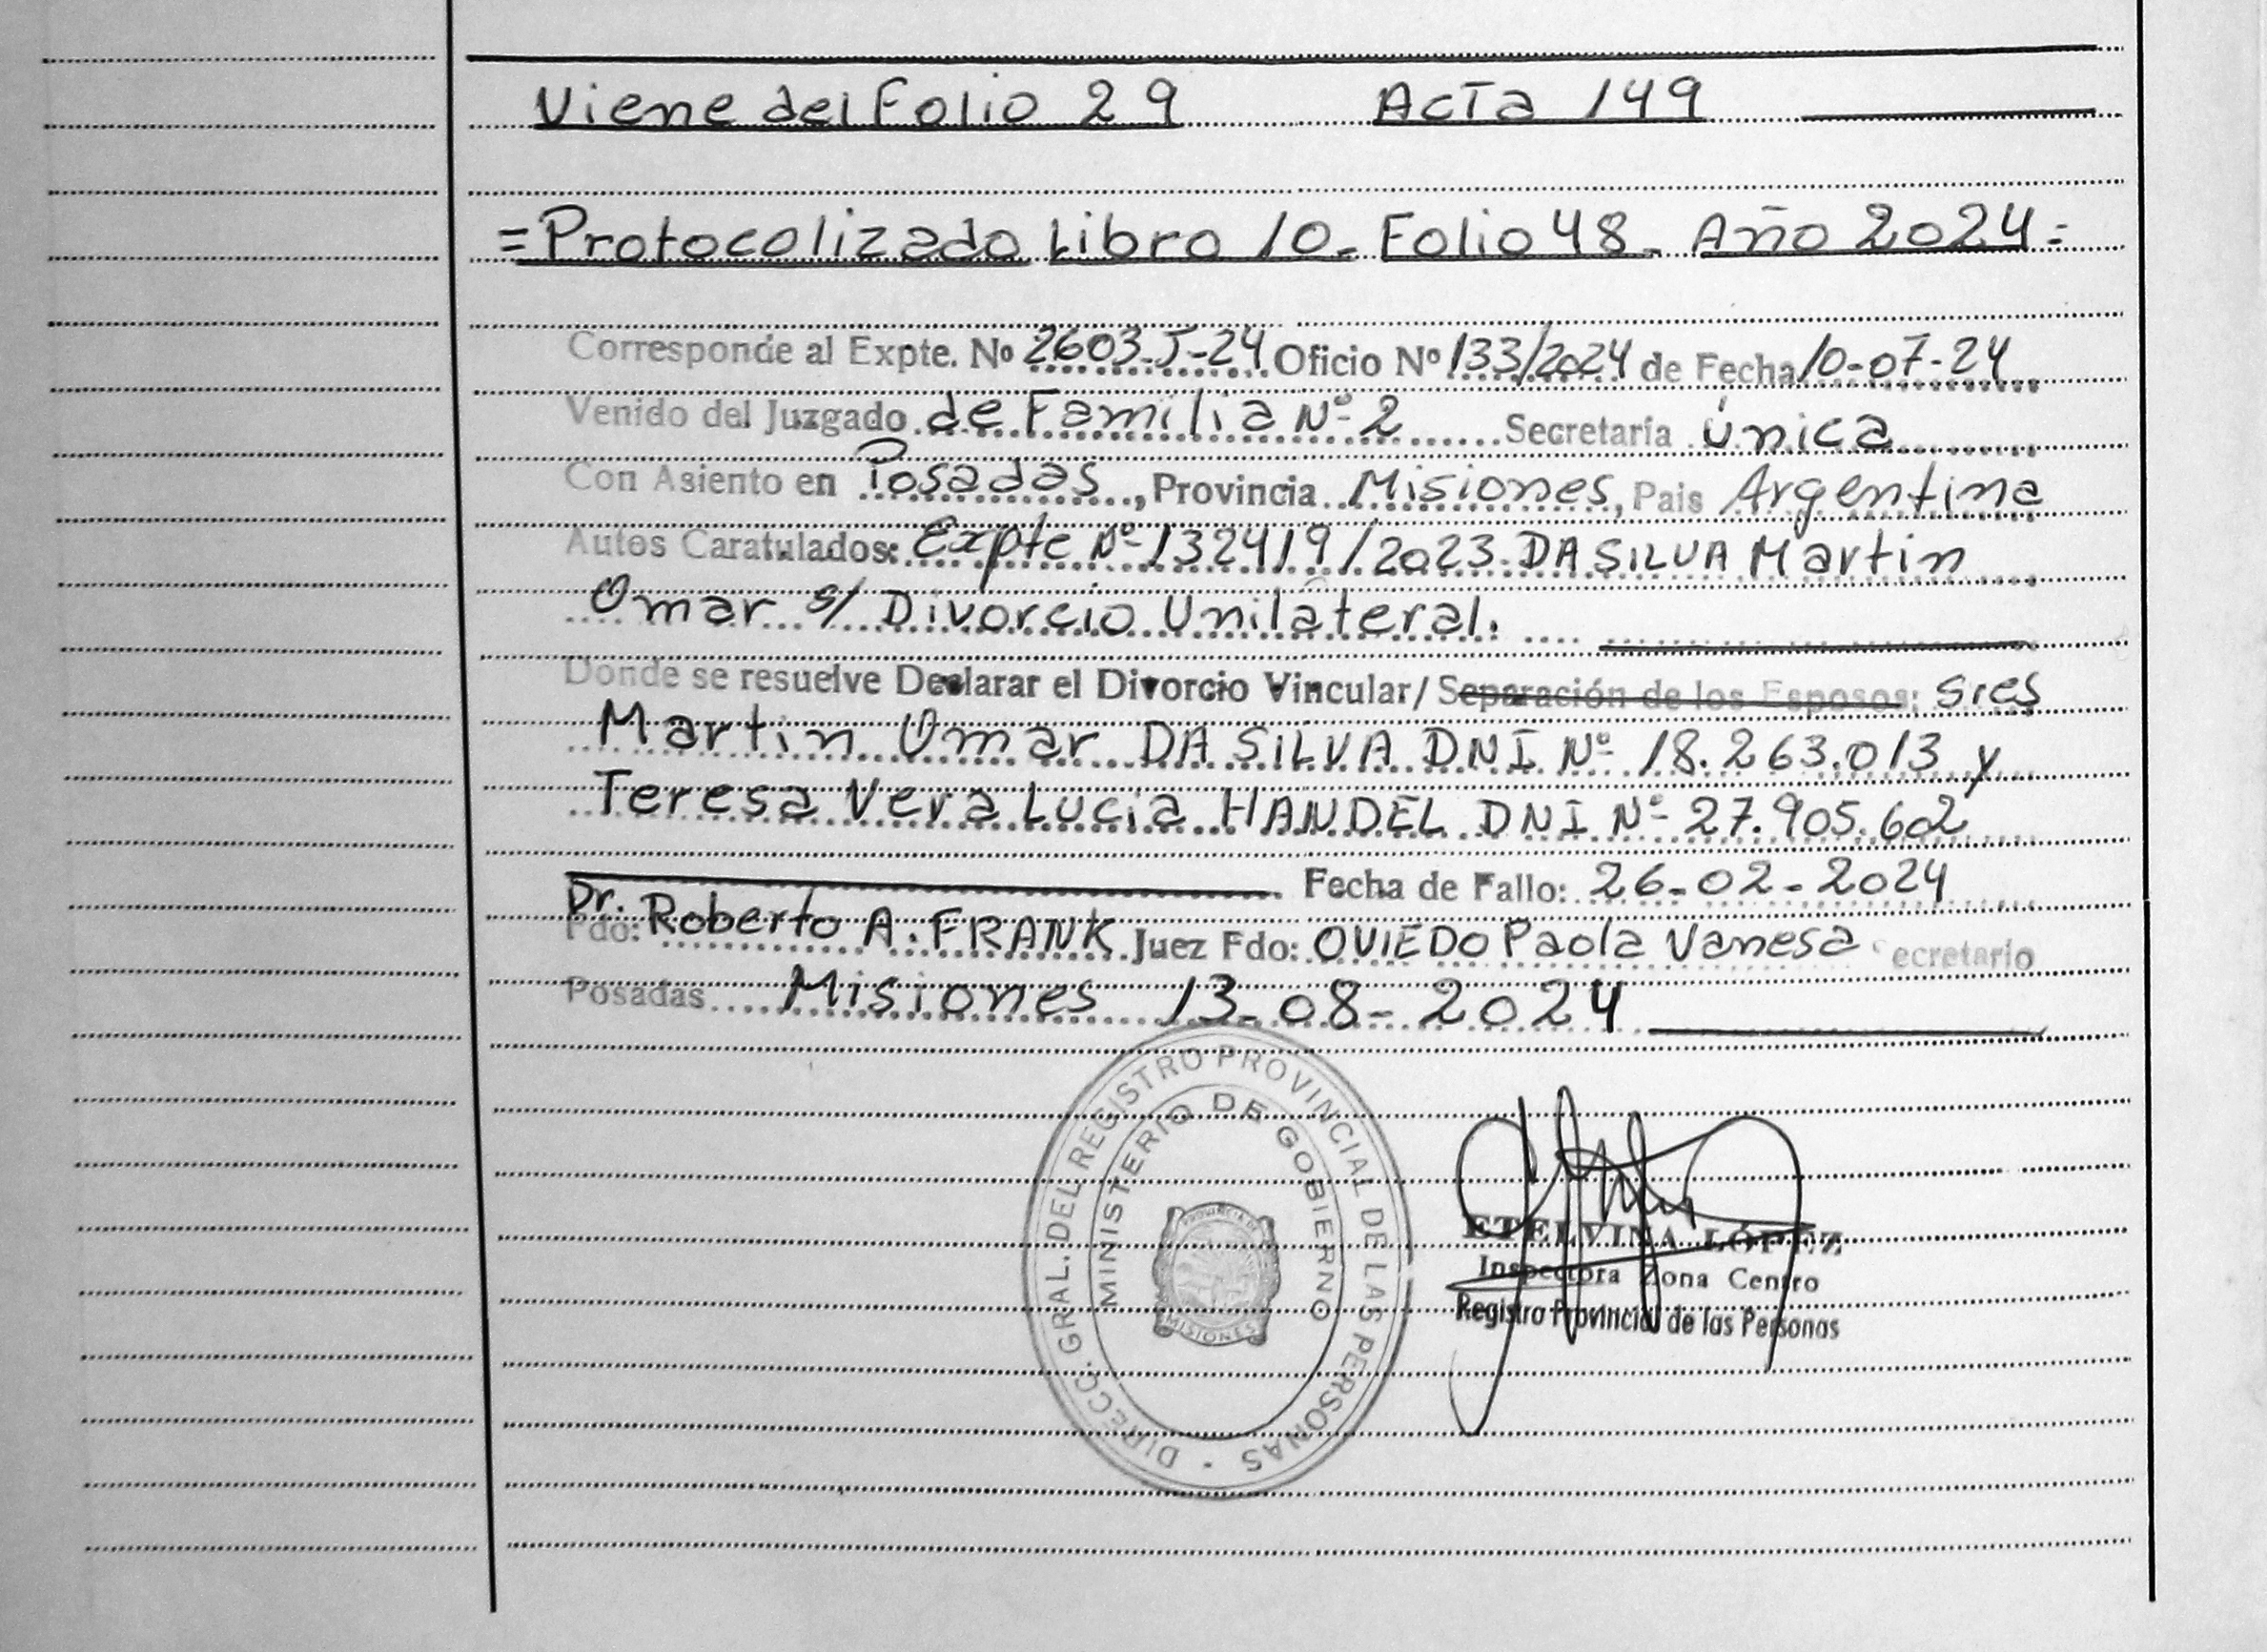 Viene del Folio 29 Acta 149
=Protocolizado Libro 10- Folio 48- Año 2024=
Corresponde al Expte. Nº 2603-J-24 Oficio Nº 133/2024 de Fecha 10-07-24
Venido del Juzgado de Familia Nº 2 Secretaría única
Con Asiento en Posadas, Provincia Misiones, Pais Argentina
Autos Caratulados: Expte Nº 132419/2023 DA SILVA Martin
Omar s/ Divorcio Unilateral.
Donde se resuelve Declarar el Divorcio Vincular/ Separación de los Esposos: Sres
Martin Omar DA SILVA DNI Nº 18.263.013 y
Teresa Vera Lucia HANDEL DNI Nº 27.905.602
Fecha de Fallo: 26-02-2024
Dr.
Fdo: Roberto A. FRANK Juez Fdo: OVIEDO Paola Vanesa Secretario
Posadas Misiones 13-08-2024
DIRECC. GRAL. DEL REGISTRO PROVINCIAL DE LAS PERSONAS -
MINISTERIO DE GOBIERNO
PROVINCIA DE
MISIONES
ETELVINA LÓPEZ
Inspectora Zona Centro
Registro Provincial de las Personas